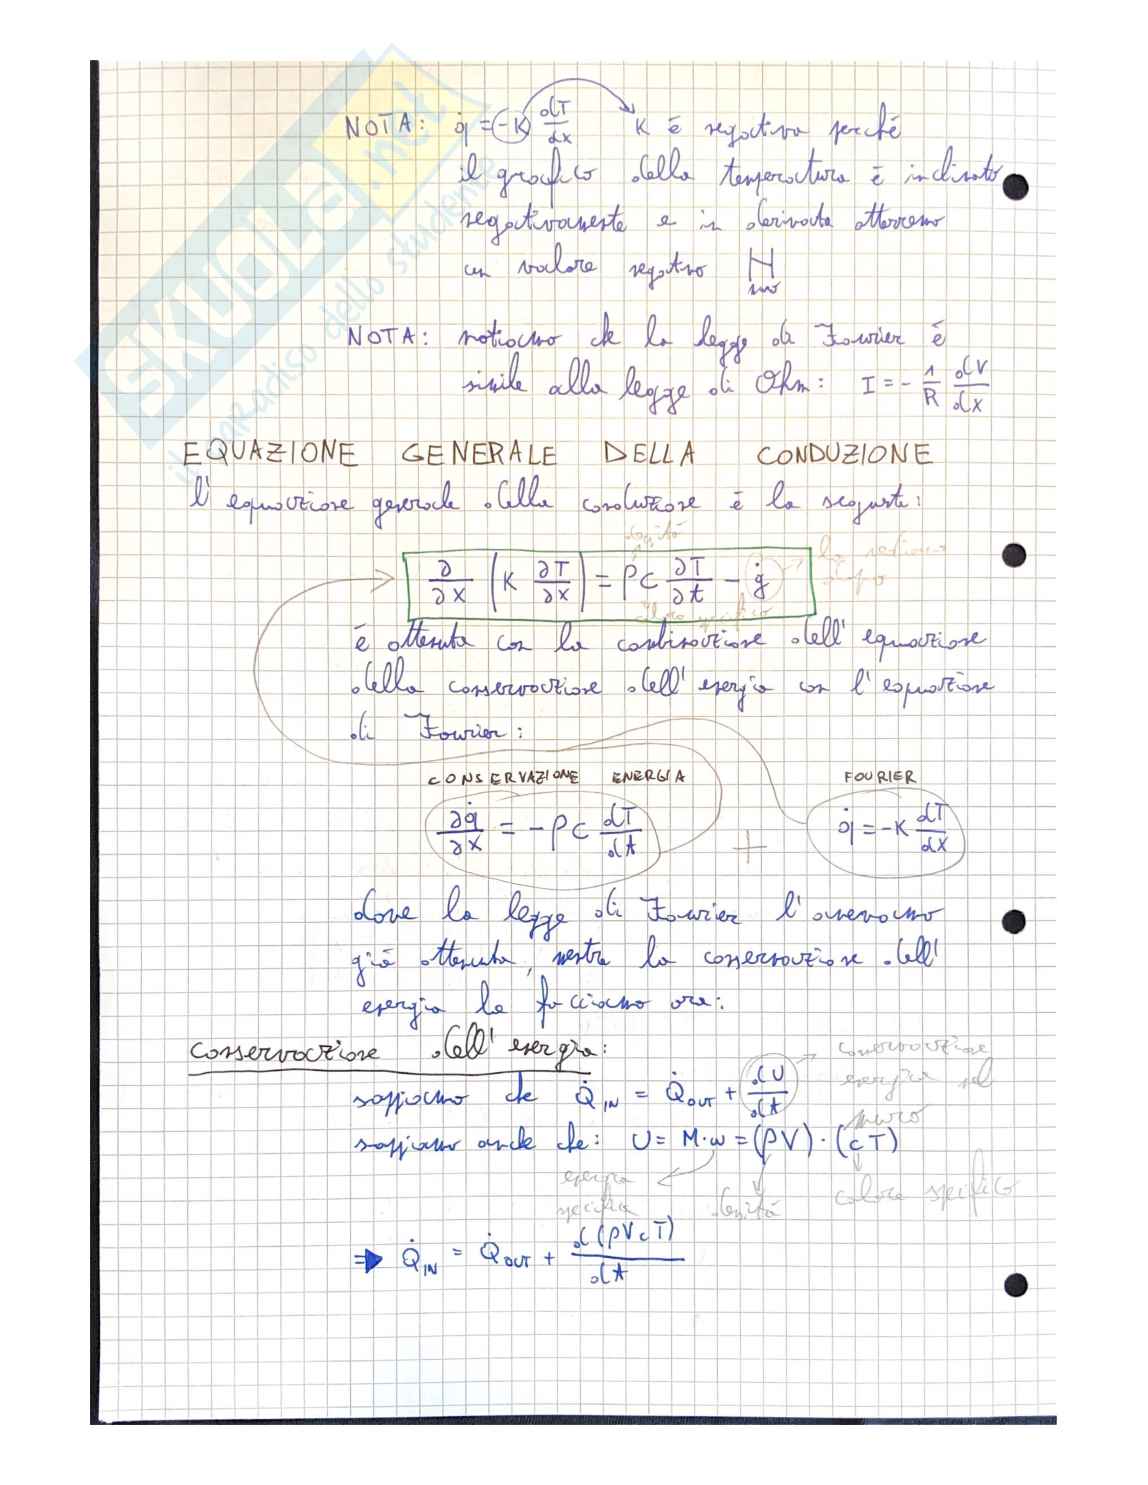 NOTA: q̇ = -K dT/dx K è negativa perché
il grafico della temperatura è inclinato
negativamente e in derivata otterremo
un valore negativo
NOTA: notiamo che la legge di Fourier è
simile alla legge di Ohm: I = - 1/R dV/dx
EQUAZIONE GENERALE DELLA CONDUZIONE
l'equazione generale della conduzione è la seguente:
densità
∂/∂x (K ∂T/∂x) = ρc ∂T/∂t - ġ
specifico
è ottenuta con la combinazione dell'equazione
della conservazione dell'energia con l'equazione
di Fourier:
CONSERVAZIONE ENERGIA FOURIER
∂q̇/∂x = -ρc dT/dt + q̇ = -K dT/dx
dove la legge di Fourier l'avevamo
già ottenuta, mentre la conservazione dell'
energia la facciamo ora:
Conservazione dell'energia:
conservazione
energia nel
muro
sappiamo che Q̇IN = Q̇OUT + dU/dt
sappiamo anche che: U = M·u = (ρV)·(cT)
energia
specifica
densità
calore specifico
⇒ Q̇IN = Q̇OUT + d(ρVcT)/dt
SKUOLA.net
il paradiso dello studente